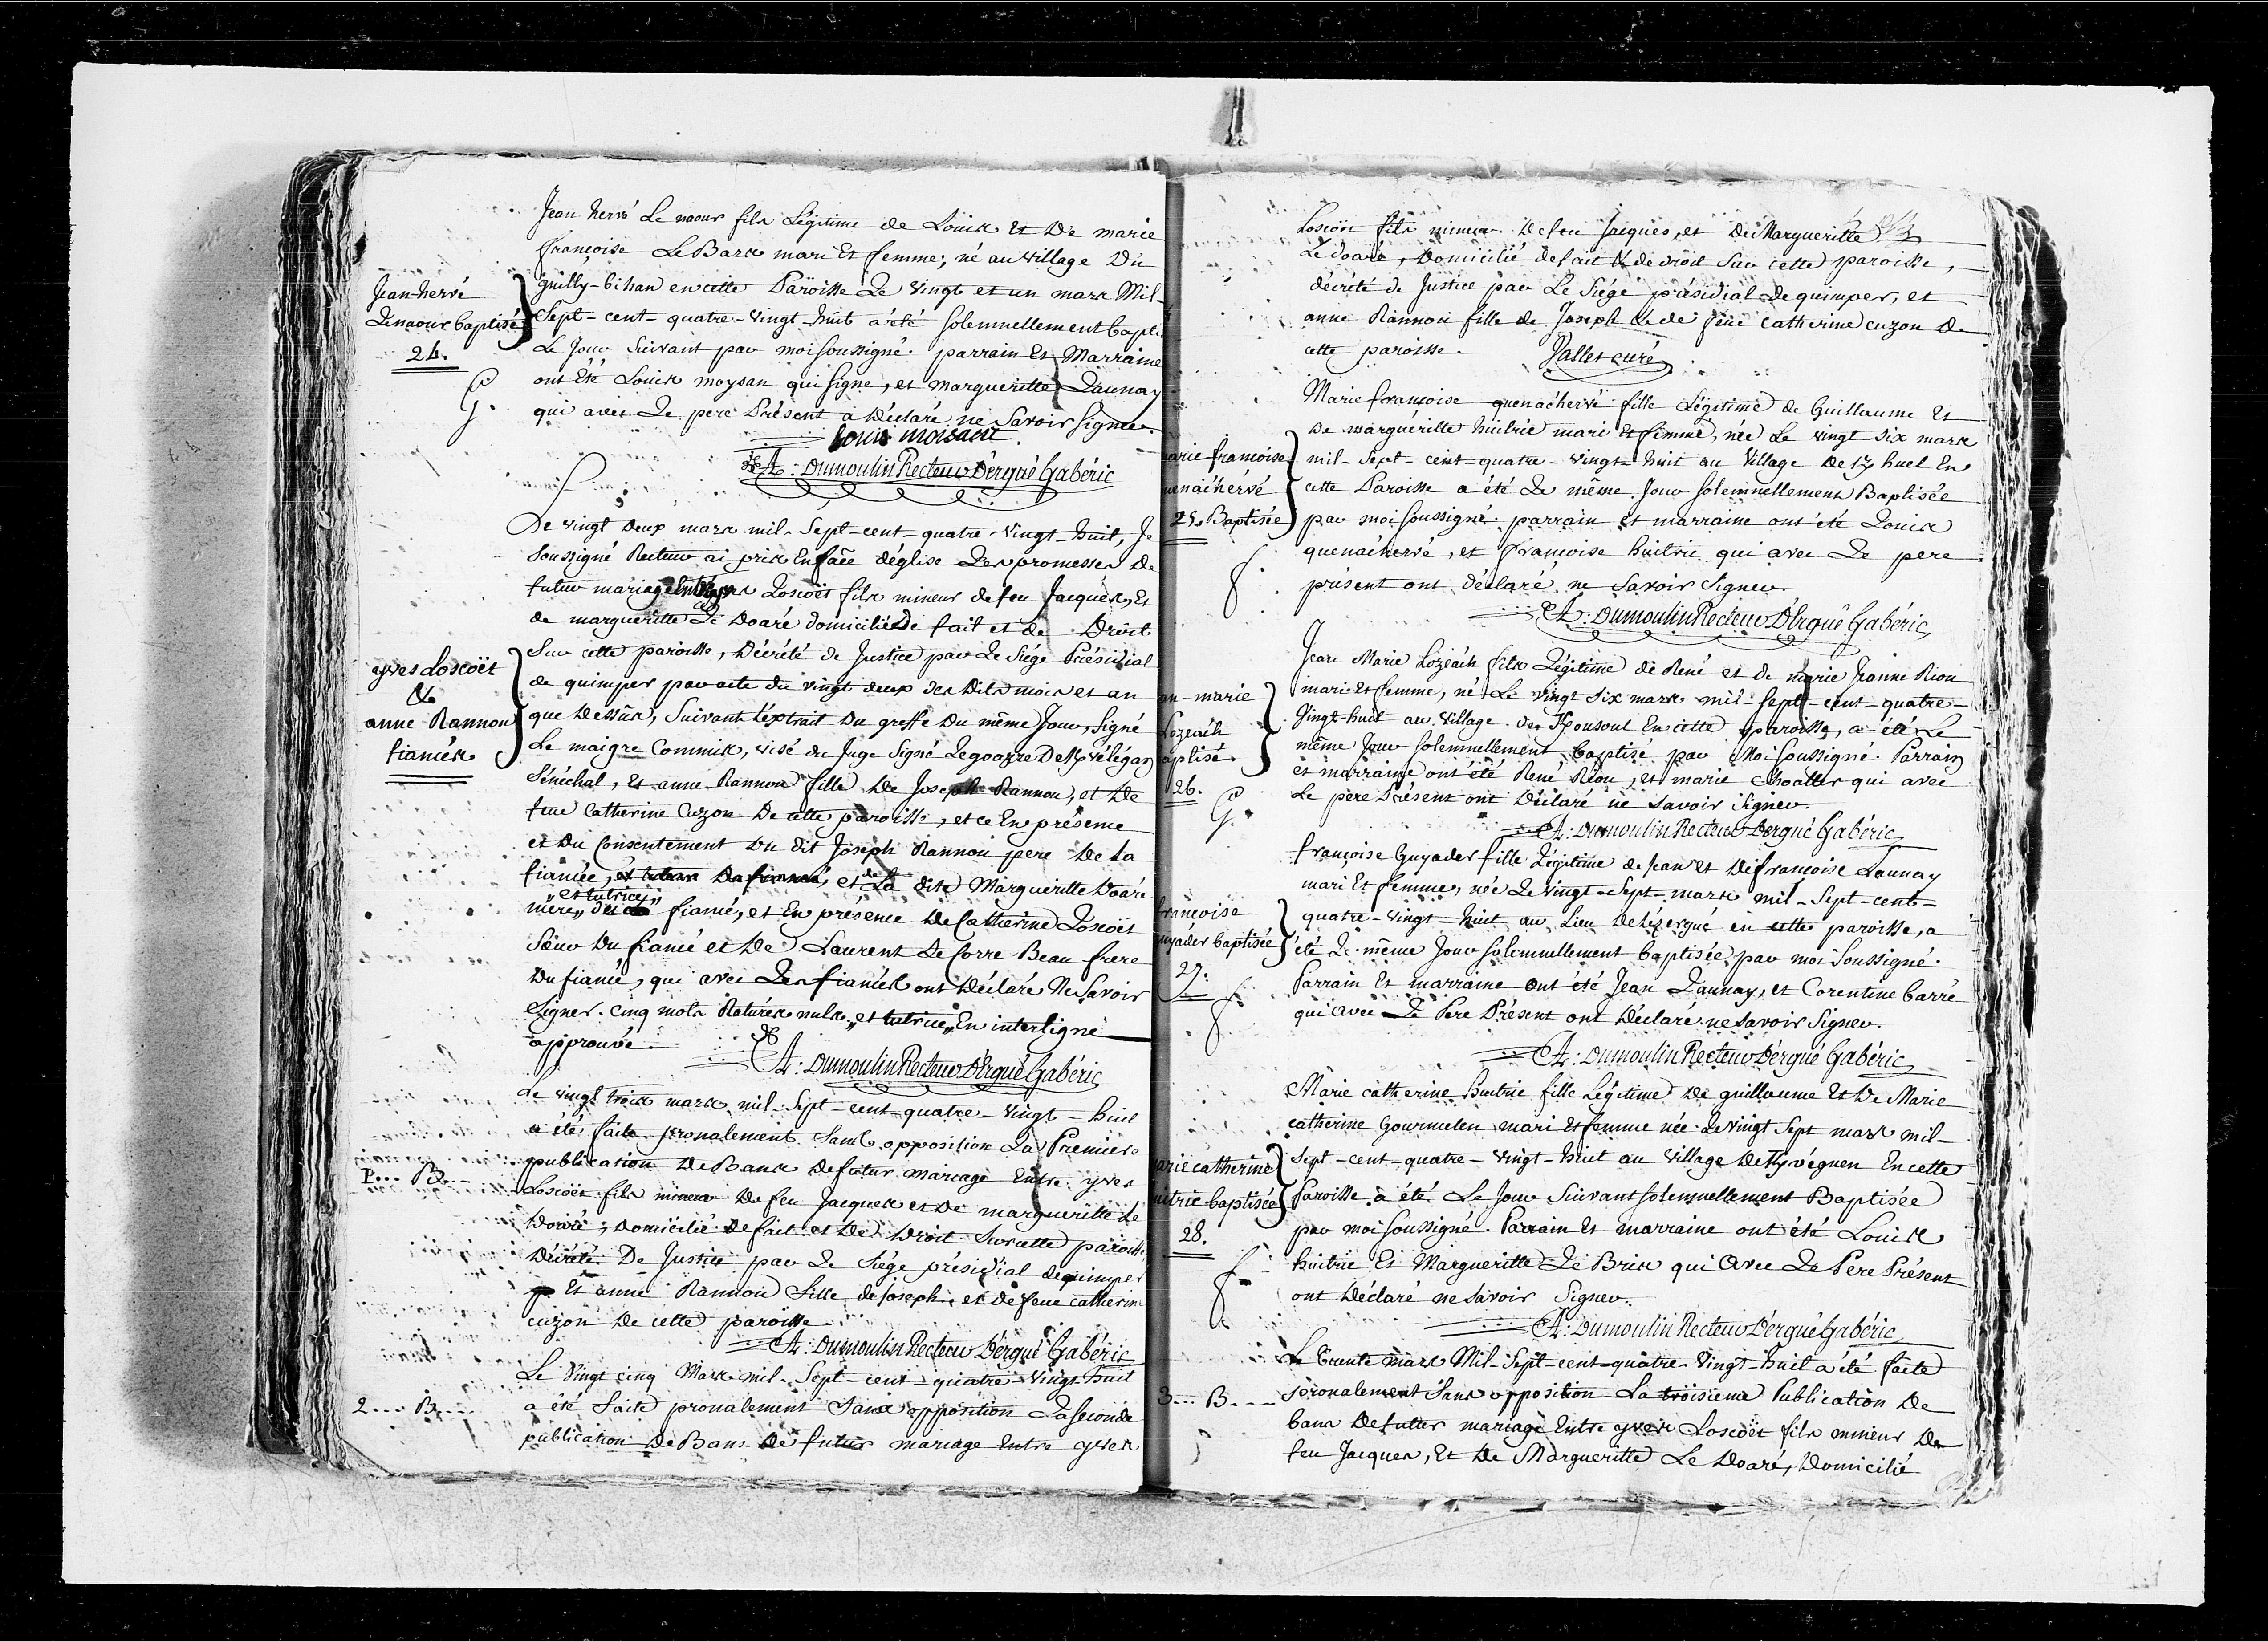 Jean hervé Le naour fils Légitime de Louis Et De marie
françoise Le Bars mari Et femme, né au village Du
guilly-bihan en cette Paroisse Le vingt et un mars Mil-
Sept-cent-quatre-vingt-huit a été solemnellement bapti
Le Jour Suivant par moi soussigné. parrain Et Marraine
ont Eté Louis moysan qui signe, et margueritte Launay
qui avec Le pere Présent a Déclaré ne Savoir signer.
Jean-hervé
Lenaour baptisé
24.
G.
louis moisant
A: Dumoulin Recteur D'ergué Gabéric
Le vingt deux mars mil-Sept-cent-quatre-vingt-huit, Je
Soussigné Recteur ai pris En face d'église Les promesses De
futur mariage Entre yves Loscoët fils mineur de feu Jacques, Et
de margueritte Le Doaré domicilié De fait et de Droit
Sur cette paroisse, Décrété de Justice par Le Siége Présidial
de quimper par acte du vingt deux des Dits mois et an
que Dessus, Suivant l'éxtrait Du greffe Du même Jour, Signé
Le maigre Commis, visé du Juge Signé Legoazre De Kervélégan
Sénéchal, Et anne Rannou fille De Joseph Rannou, et De
feue Catherine Cuzon De cette paroisse, et ce En présence
et Du Consentement Du dit Joseph Rannou pere De La
fiancée, et de La dite Margueritte Doaré
"et tutrice"
mere, du fiancé, et En présence De Catherine Loscoët
Sœur Du fiancé et De Laurent Le Corre Beau frere
Du fiancé, qui avec Les fiancés ont Déclaré Ne Savoir
Signer. cinq mots Raturés nuls, "et tutrice" En interligne
approuvé
yves Loscoët
&
anne Rannou
fiancés
A: Dumoulin Recteur D'ergué Gabéric
Le vingt trois mars mil-Sept-cent-quatre-vingt-huit
a été faite pronalement Sans opposition La Premiere
publication De Bans De futur mariage Entre yves
Loscoët fils mineur De feu Jacques et De margueritte Le
Doaré, Domicilié De fait et De Droit Sur cette paroisse
Décrété De Justice par Le Siége présidial de quimper
Et anne Rannou fille de joseph, et De feue catherine
cuzon De cette paroisse
1... B...
A: Dumoulin Recteur D'ergué Gabéric
Le vingt cinq Mars mil-Sept-cent-quatre-vingt huit
a été faite pronalement Sans opposition La Seconde
publication De Bans De futur mariage Entre yves
2... B...
Loscoët fils mineur De feu Jacques, et De Margueritte
Le doaré, Domicilié de fait & de droit Sur cette paroisse,
décrété de Justice par Le Siége présidial de quimper, et
anne Rannou fille de Joseph & de feue Catherine cuzon De
cette paroisse.
Jallet curé
Marie françoise quenac'hervé fille Légitime de Guillaume Et
De margueritte huitric mari Et femme, née Le vingt six mars
mil-Sept-cent-quatre-vingt-huit au Village De Ty huel En
cette Paroisse a été Le même Jour solemnellement Baptisée
par moi soussigné. parrain et marraine ont été Louis
quenac'hervé, et françoise huitric qui avec Le pere
présent ont déclaré ne Savoir Signer
arie françoise
uenac'hervé
25. Baptisée
f.
A: Dumoulin Recteur D'Ergué Gabéric
Jean Marie Lozéach fils Légitime de René et de marie Jeanne Riou
mari Et femme, né Le vingt six mars mil-Sept-cent-quatre-
Vingt-huit au village De Kerousoul En cette paroisse, a été Le
même Jour solemnellement baptisé par Moi soussigné. Parrain
et marraine ont été René Riou, et marie Choatter qui avec
Le pere Présent ont Déclaré ne savoir Signer.
an-marie
Lozéach
aptisé
26.
G.
A: Dumoulin Recteur D'ergué Gabéric
françoise Guyader fille Légitime de Jean et De françoise Launay
mari Et femme, née Le vingt-Sept-mars mil-Sept-cent-
quatre-vingt-huit au Lieu De Lézergué en cette paroisse, a
été Le même Jour solemnellement baptisée par moi Soussigné.
Parrain Et marraine ont été Jean Launay, et Corentine barré
qui avec Le Pere Présent ont Déclaré ne savoir Signer.
françoise
uyader baptisée
27.
f.
A: Dumoulin Recteur D'ergué Gabéric
Marie catherine huitric fille Légitime De guillaume Et De Marie
catherine Gourmelen mari Et femme née Le Vingt Sept mars mil-
Sept-cent-quatre-vingt-huit au Village De Kervéguen En cette
Paroisse a été Le Jour Suivant solemnellement Baptisée
par moi soussigné. Parrain Et marraine ont été Louis
huitric Et Margueritte Le Bris qui avec Le Pere Présent
ont Déclaré ne savoir Signer.
arie catherine
uitric baptisée
28.
f.
A: Dumoulin Recteur D'ergué Gabéric
Le Trente mars Mil-Sept-cent-quatre-vingt-huit a été faite
pronalement Sans opposition La troisieme Publication De
bans De futur mariage Entre yves Loscoët fils mineur De
feu Jacques, Et De Margueritte Le Doaré, Domicilié
3... B...